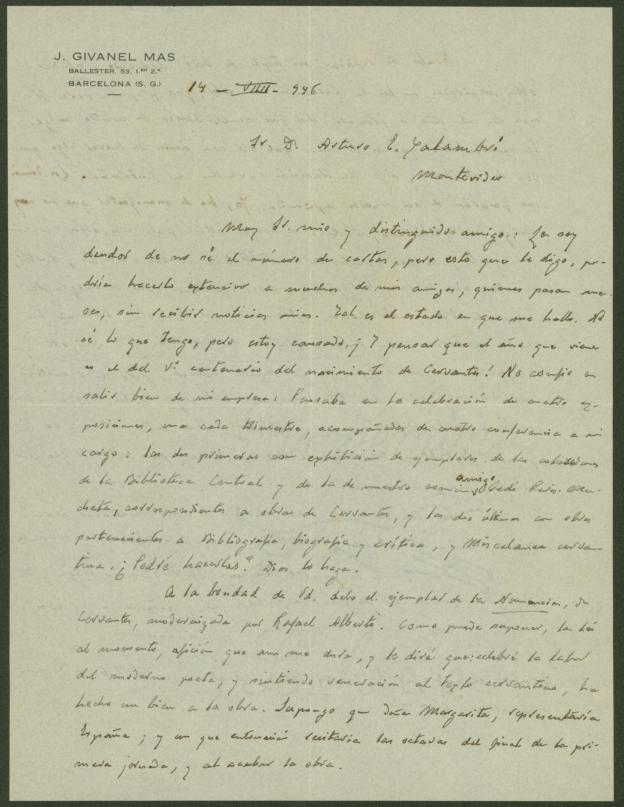 J. GIVANEL MAS
BALLESTER, 53, 1.er 2.ª
BARCELONA (S. G.)
14 - VIII - 946
Sr. D. Arturo E. Xalambrí
Montevideo
Muy Sr. mio y distinguido amigo: Le soy
deudor de no sé el número de cartas, pero esto que le digo, po-
dría hacerlo extensivo a muchos de mis amigos, quienes pasan me-
ses, sin recibir noticias mias. Tal es el estado en que me hallo. No
sé lo que tengo, pero estoy cansado. ¡Y pensar que el año que viene
es el del Vº centenario del nacimiento de Cervantes! No confio en
salir bien de mi empresa: Pensaba en la celebración de cuatro ex-
posiciones, una cada trimestre, acompañadas de cuatro conferencia a mi
cargo: las dos primeras con exhibición de ejemplares de las colecciones
de la Biblioteca Central y de la de nuestro común amigo Sedó Peris-Men-
cheta, correspondientes a obras de Cervantes, y las dos últimas con obras
pertenecientes a Bibliografía, biografía y crítica, y Miscelanea cervan-
tina. ¿Podré hacerlas? Dios lo haga.
A la bondad de Vd. debo el ejemplar de la Numancia, de
Cervantes, modernizada por Rafael Alberti. Como puede suponer, la leí
al momento, afición que aun me dura, y le diré que: celebré la labor
del moderno poeta, y sintiendo veneración al texto cervantino, ha
hecho un bien a la obra. Supongo que Doña Margarita, representaría
España; y con que entonación recitaría las octavas del final de la pri-
mera jornada, y al acabar la obra.